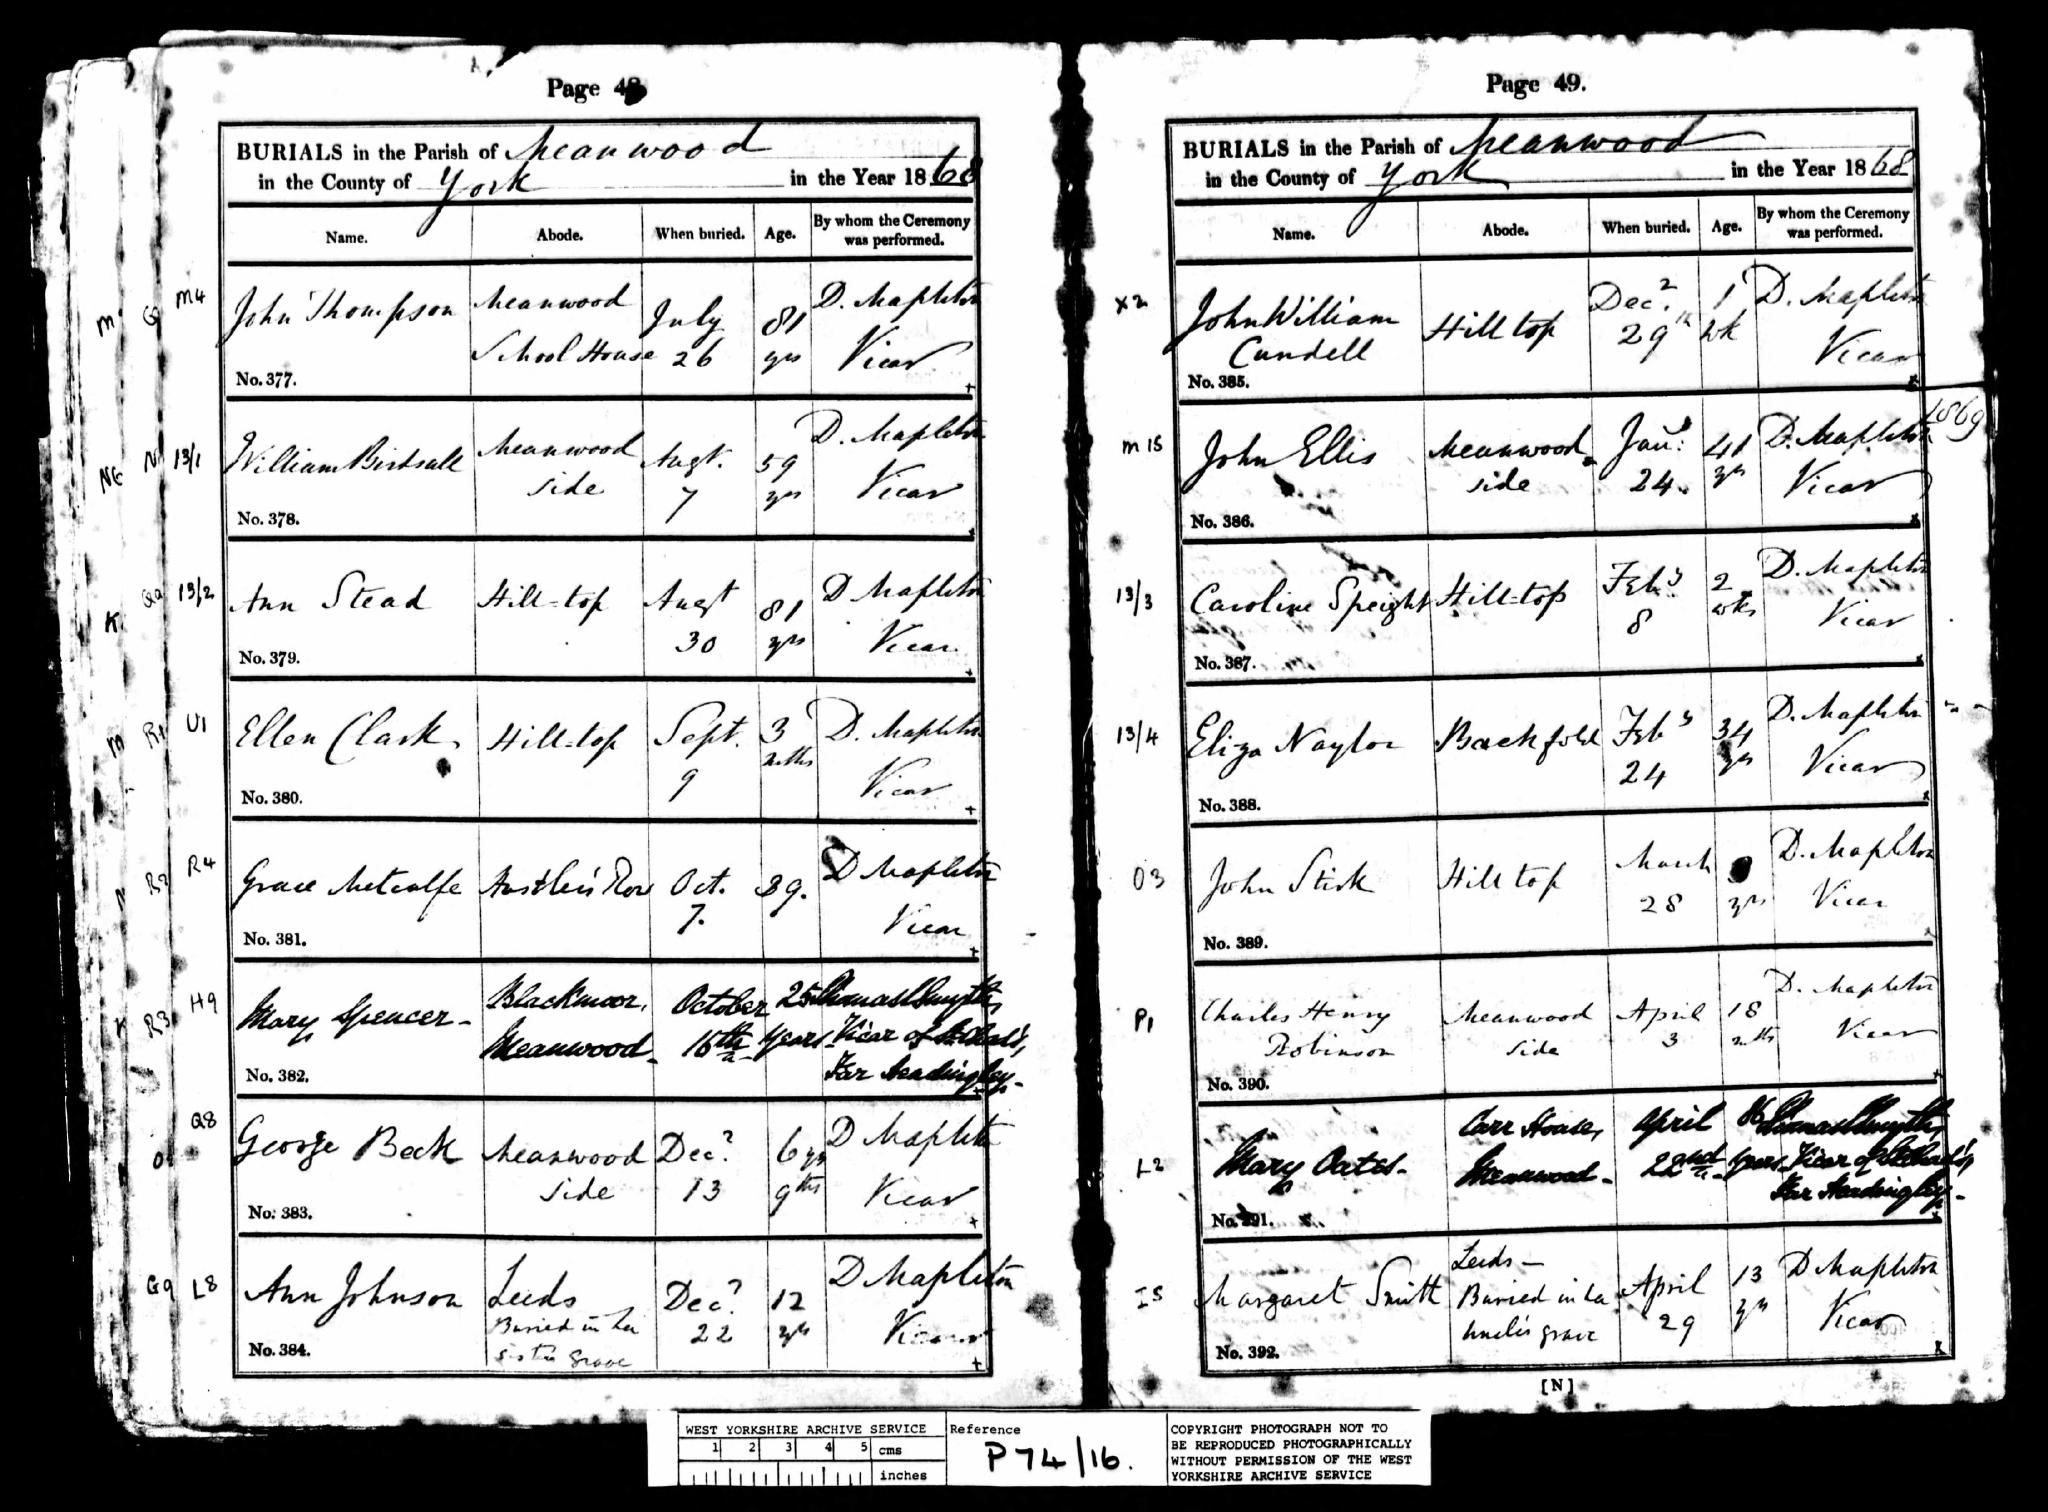 Page 48
BURIALS in the Parish of Meanwood
in the County of York in the Year 1868
Name. Abode. When buried. Age. By whom the Ceremony was performed.
M4 John Thompson Meanwood School House July 26 81 yrs D. Mapleton Vicar
No. 377.
13/1 William Birdsall Meanwood side Augt. 7 59 yrs D. Mapleton Vicar
No. 378.
13/2 Ann Stead Hill-top Augt 30 81 yrs D Mapleton Vicar
No. 379.
U1 Ellen Clark Hill-top Sept. 9 3 mths D. Mapleton Vicar
No. 380.
R4 Grace Metcalfe Row Oct. 7. 39. D Mapleton Vicar
No. 381.
H9 Mary Spencer- Blackmoor, Meanwood- October 16th 25 years Thomas Smyth, Vicar of St. Chad's, Far Headingley-
No. 382.
Q8 George Beck Meanwood Side Dec. 13 6 yrs 9ths D Mapleton Vicar
No. 383.
L8 Ann Johnson Leeds Buried in her sisters grave Dec. 22 12 yrs D Mapleton Vicar
No. 384.
Page 49.
BURIALS in the Parish of Meanwood
in the County of York in the Year 1868
Name. Abode. When buried. Age. By whom the Ceremony was performed.
X2 John William Cundell Hill top Dec. 29th 1 wk D. Mapleton Vicar
No. 385.
1869
M15 John Ellis Meanwood-side Jany. 24. 41 yrs D. Mapleton Vicar
No. 386.
13/3 Caroline Speight Hill-top Feby 8 2 wks D. Mapleton Vicar
No. 387.
13/4 Eliza Naylor Backfold Feby 24 34 yrs D. Mapleton Vicar
No. 388.
O3 John Stirk Hill top March 28 yrs D. Mapleton Vicar
No. 389.
P1 Charles Henry Robinson Meanwood Side April 3 18 mths D. Mapleton Vicar
No. 390.
L2 Mary Oates- Carr House, Meanwood- April 22nd 86 years Thomas Smyth, Vicar of St. Chad's, Far Headingley-
No. 391.
I5 Margaret Smith Leeds- Buried in her uncle's grave April 29 13 yrs D Mapleton Vicar
No. 392.
[N]
WEST YORKSHIRE ARCHIVE SERVICE
1 2 3 4 5 cms
inches
Reference
P74/16.
COPYRIGHT PHOTOGRAPH NOT TO
BE REPRODUCED PHOTOGRAPHICALLY
WITHOUT PERMISSION OF THE WEST
YORKSHIRE ARCHIVE SERVICE